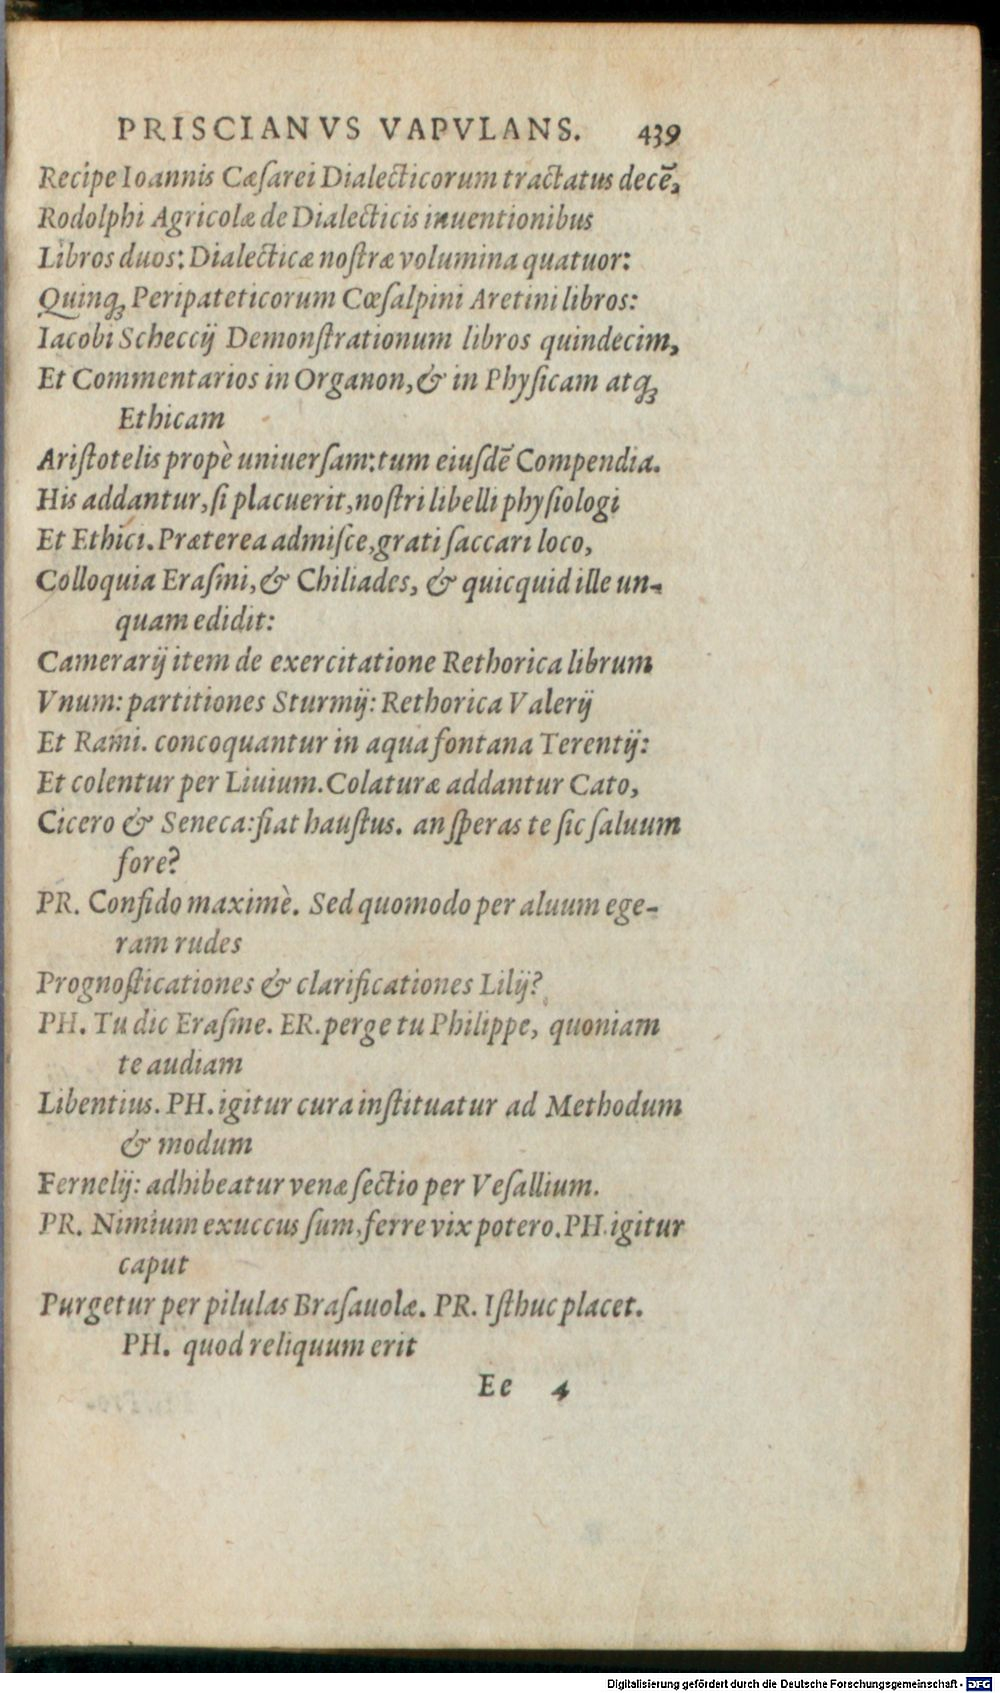 PRISCIANVS VAPVLANS. 439
Recipe Ioannis Cæſarei Dialecticorum tractatus decē,
Rodolphi Agricolæ de Dialecticis inuentionibus
Libros duos: Dialecticæ noſtræ volumina quatuor:
Quinq; Peripateticorum Cœſalpini Aretini libros:
Iacobi Scheccij Demonſtrationum libros quindecim,
Et Commentarios in Organon, & in Phyſicam atq;
Ethicam
Ariſtotelis propè uniuerſam: tum eiuſdē Compendia.
His addantur, ſi placuerit, noſtri libelli phyſiologi
Et Ethici. Præterea admiſce, grati ſaccari loco,
Colloquia Eraſmi, & Chiliades, & quicquid ille un-
quam edidit:
Camerarij item de exercitatione Rethorica librum
Vnum: partitiones Sturmij: Rethorica Valerij
Et Rami. concoquantur in aqua fontana Terentij:
Et colentur per Liuium. Colaturæ addantur Cato,
Cicero & Seneca: fiat hauſtus. an ſperas te ſic ſaluum
fore?
PR. Confido maximè. Sed quomodo per aluum ege-
ram rudes
Prognoſticationes & clarificationes Lilij?
PH. Tu dic Eraſme. ER. perge tu Philippe, quoniam
te audiam
Libentius. PH. igitur cura inſtituatur ad Methodum
& modum
Fernelij: adhibeatur venæ ſectio per Veſallium.
PR. Nimium exuccus ſum, ferre vix potero. PH. igitur
caput
Purgetur per pilulas Braſauolæ. PR. Iſthuc placet.
PH. quod reliquum erit
Ee 4
Digitalisierung gefördert durch die Deutsche Forschungsgemeinschaft - DFG